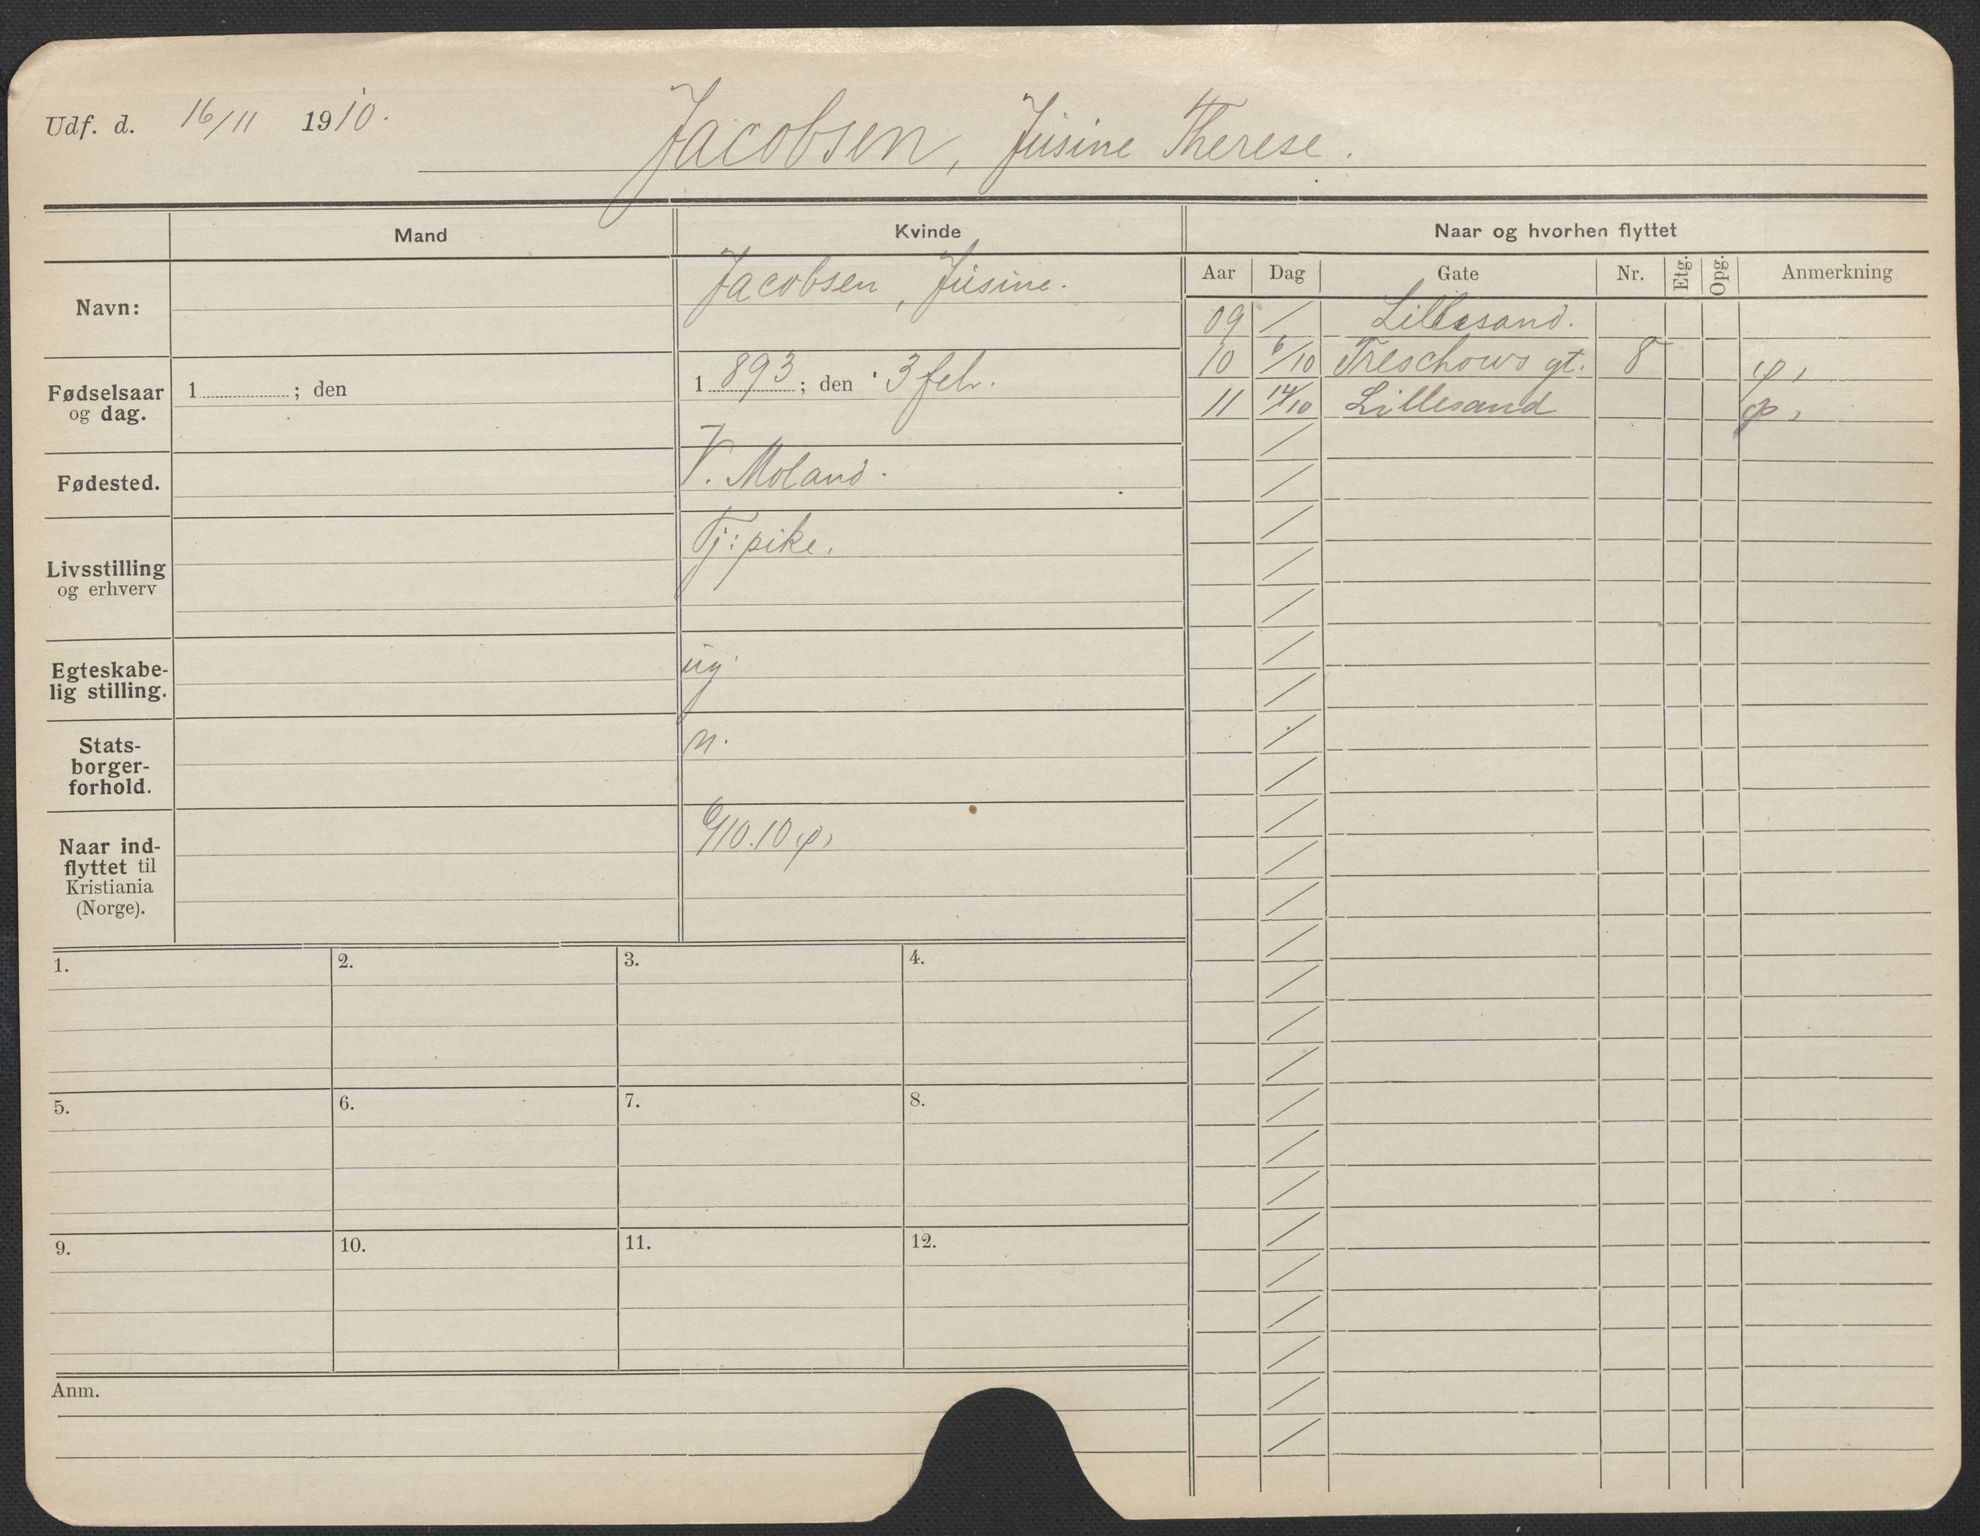 Udf. d. 16/11 1910. Jacobsen, Jusine Therese.
Mand Kvinde Naar og hvorhen flyttet
Aar Dag Gate Nr. Etg. Opg. Anmerkning
Navn: Jacobsen, Jusine.
Fødselsaar og dag. 1 ; den 1893; den 3 feb.
Fødested. V. Moland.
Livsstilling og erhverv Tj: pike.
Egteskabe-
lig stilling. ug.
Stats-
borger-
forhold. n.
Naar ind-
flyttet til
Kristiania
(Norge). 6/10.10 φ,
09 / Lillesand.
10 6/10 Treschows gt. 8 φ,
11 14/10 Lillesand φ,
1. 2. 3. 4.
5. 6. 7. 8.
9. 10. 11. 12.
Anm.